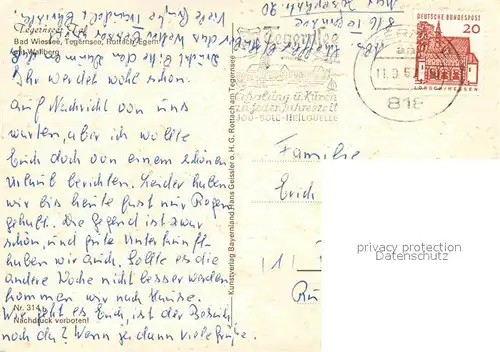 Tegernsee
Bad Wiessee, Tegernsee, Rottach-Egern
mit Wallberg
Ihr werdet wohl schon
auf Nachricht von uns
warten, aber ich wollte
Euch doch von einem schönen
Urlaub berichten. Leider haben
wir bis heute fast nur Regen
gehabt. Die Gegend ist zwar
schön, und gute Unterkunft
haben wir auch. Sollte es die
andere Woche nicht besser werden
kommen wir nach Hause.
Nr. 314
Wie geht es Euch, ist der Besuch
Nachdruck verboten!
noch da? Wenn ja dann viele Grüße.
Kunstverlag Bayernland, Hans Geissler o.H.G. Rottach am Tegernsee
Tegernsee
Erholung u. Kuren
zu jeder Jahreszeit
JOD-SOLE-HEILQUELLE
818
DEUTSCHE BUNDESPOST
20
LORSCH/HESSEN
Familie
Erich
privacy protection
Datenschutz